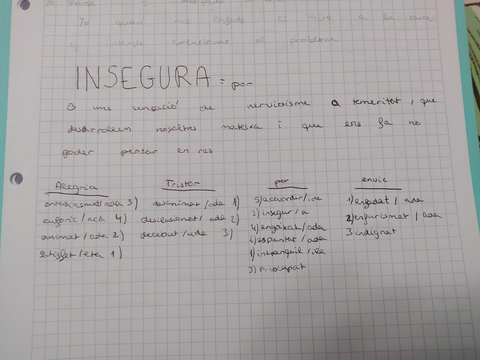 Jo quan me enfade el miro a la cara
y intente solucionar el problema
INSEGURA = por
És una sensació de nerviosisme o temeritat, que
desarrollem nosaltres mateixa i que ens fa no
poder pensar en res
Alegria
entusiasmat/ada 3)
eufòric/aca 4)
animat/ada 2)
satisfet/eta 1)
Tristor
desanimat/ada 1)
desilusionat/ada 2)
decebut/uda 3)
por
5) acovardit/ida
2) insegur/a
4) engoixat/ada
6) espantat/ada
1) intranquil/ila
3) Preocupat
enveja
1) enfadat/ada
2) enfurismat/ada
3 indignat